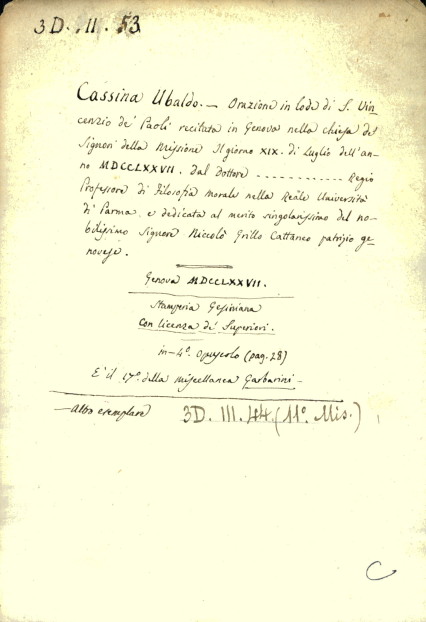 3D. .II. 53
Cassina Ubaldo. — Orazione in lode di S. Vin-
cenzio de' Paoli recitata in Genova nella chiesa de'
Signori della Missione Il giorno XIX. di Luglio dell'an-
no MDCCLXXVII. dal dottore ............ Regio
Professore di Filosofia morale nella Reale Università
di Parma e dedicata al merito singolarissimo del no-
bilissimo Signore Niccolò Grillo Cattaneo patrizio ge-
novese.
Genova MDCCLXXVII.
Stamperia Gesiniana
Con licenza de' Superiori.
in-4º opuscolo (pag. 28)
E' il 17º della Miscellanea Garbarini-
—Altro esemplare 3D. III. 44. (11º. Mis.)
C